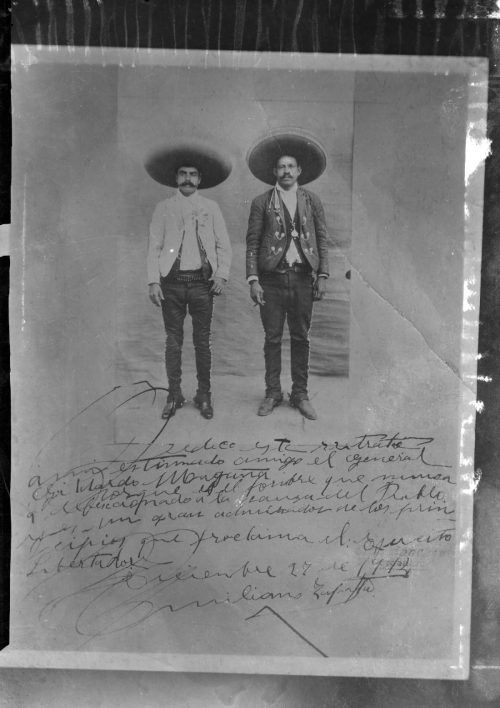 Dedico este rretrato
a mi estimado amigo el general
Gildardo Magaña
Porque es el hombre que nunca
a la causa del Pueblo,
y es un gran admirador de los prin
cipios que proclama el Ejercito
Libertador
Diciembre 27 de
Emiliano Zapata.